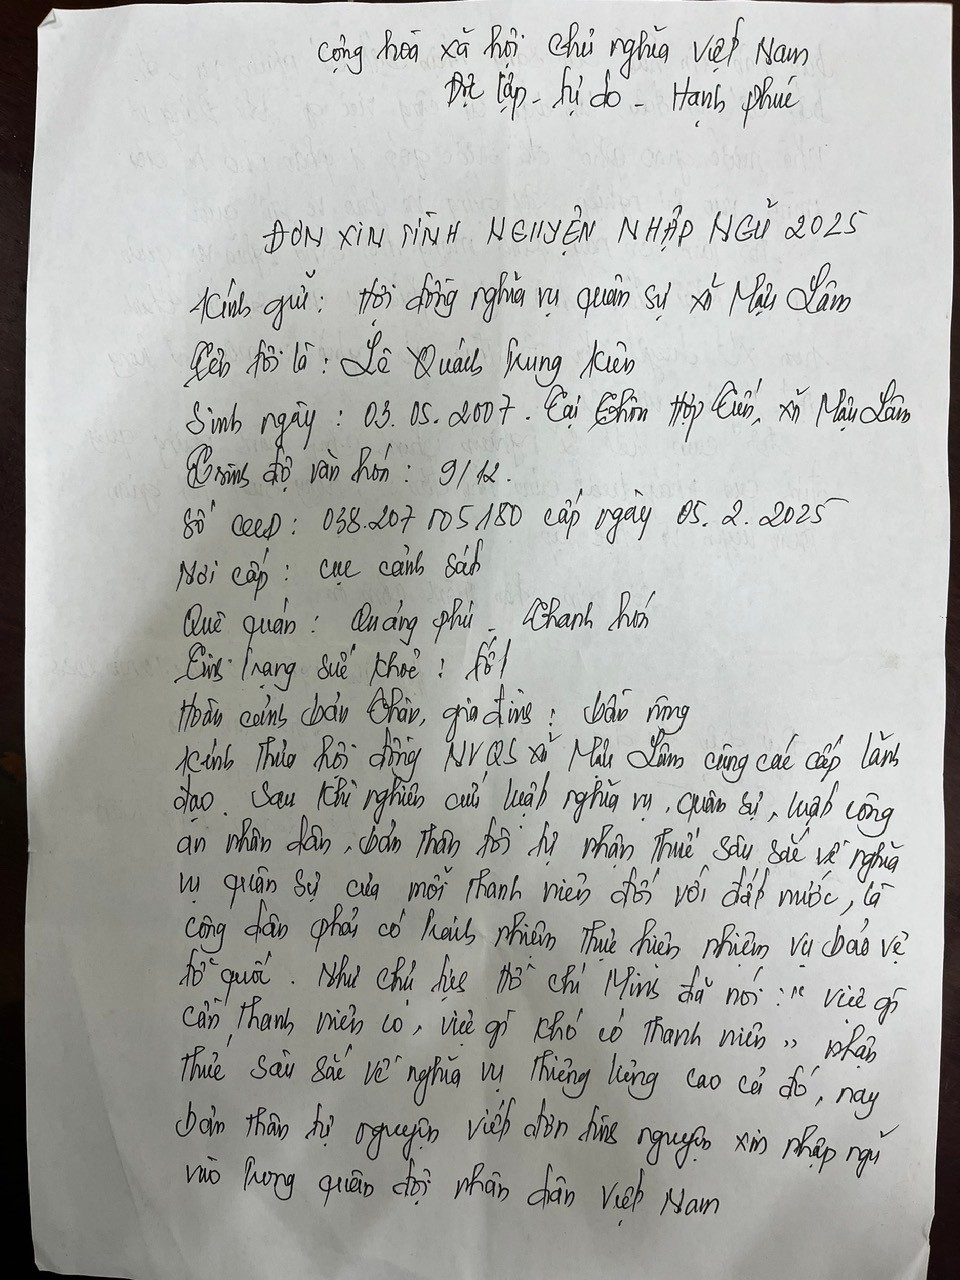 cộng hoà xã hội chủ nghĩa việt Nam
Độc lập - tự do - Hạnh phúc
ĐƠN XIN TÌNH NGUYỆN NHẬP NGŨ 2025
Kính gửi : Hội đồng nghĩa vụ quân sự xã Mậu Lâm
Tên tôi là : Lê Quách Trung Kiên
Sinh ngày : 03. 05. 2007. Tại Thôn Hợp Tiến, xã Mậu Lâm
Trình độ văn hoá : 9/12.
Số CCCD : 038.207 005180 cấp ngày 05. 2. 2025
Nơi cấp : cục cảnh sát
Quê quán : Quảng phú - Thanh hoá
Tình trạng sức khoẻ : tốt
Hoàn cảnh bản thân, gia đình : bần nông
Kính thưa hội đồng NVQS xã Mậu Lâm cùng các cấp lãnh
đạo. Sau khi nghiên cứu luật nghĩa vụ, quân sự, luật công
an nhân dân, bản thân tôi tự nhận thức sâu sắc về nghĩa
vụ quân sự của mỗi thanh niên đối với đất nước, là
công dân phải có trách nhiệm thực hiện nhiệm vụ bảo vệ
tổ quốc. Như chủ tịch Hồ chí Minh đã nói : " việc gì
cần thanh niên có, việc gì khó có thanh niên " nhận
thức sâu sắc về nghĩa vụ thiêng liêng cao cả đó, nay
bản thân tự nguyện viết đơn tình nguyện xin nhập ngũ
vào trong quân đội nhân dân việt Nam